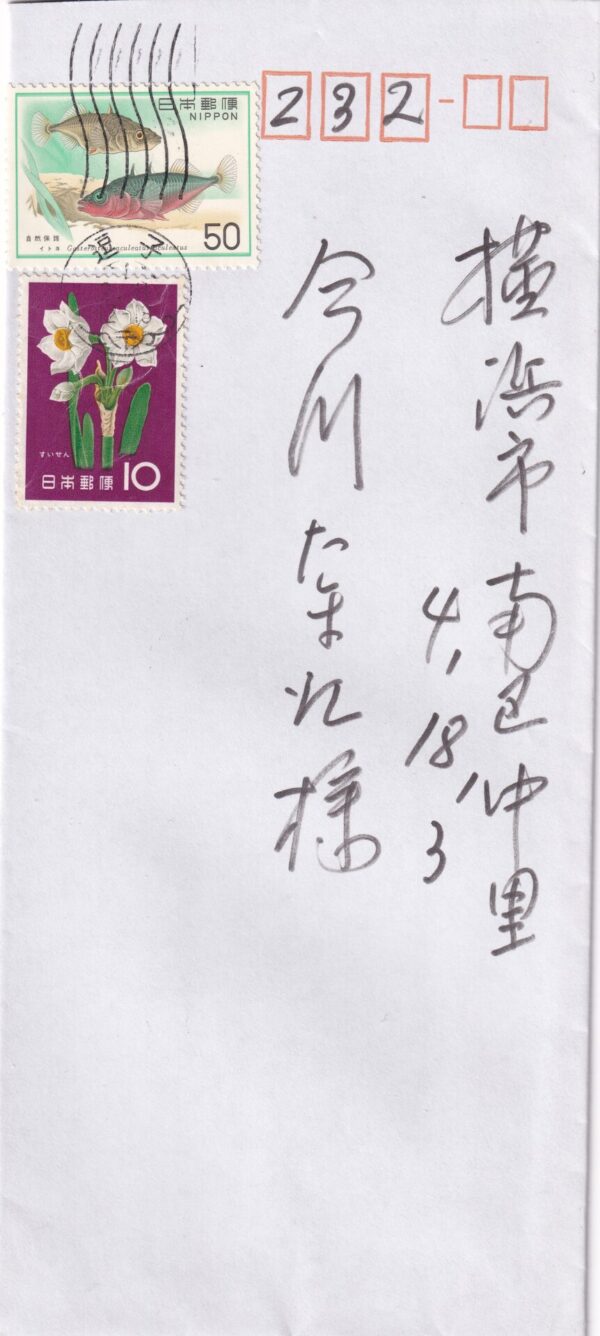 日本郵便
NIPPON
自然保護
イトヨ Gasterosteus aculeatus aculeatus
50
逗子
すいせん
日本郵便 10
232
横浜市南区仲里
4,18,3
今川たま江様